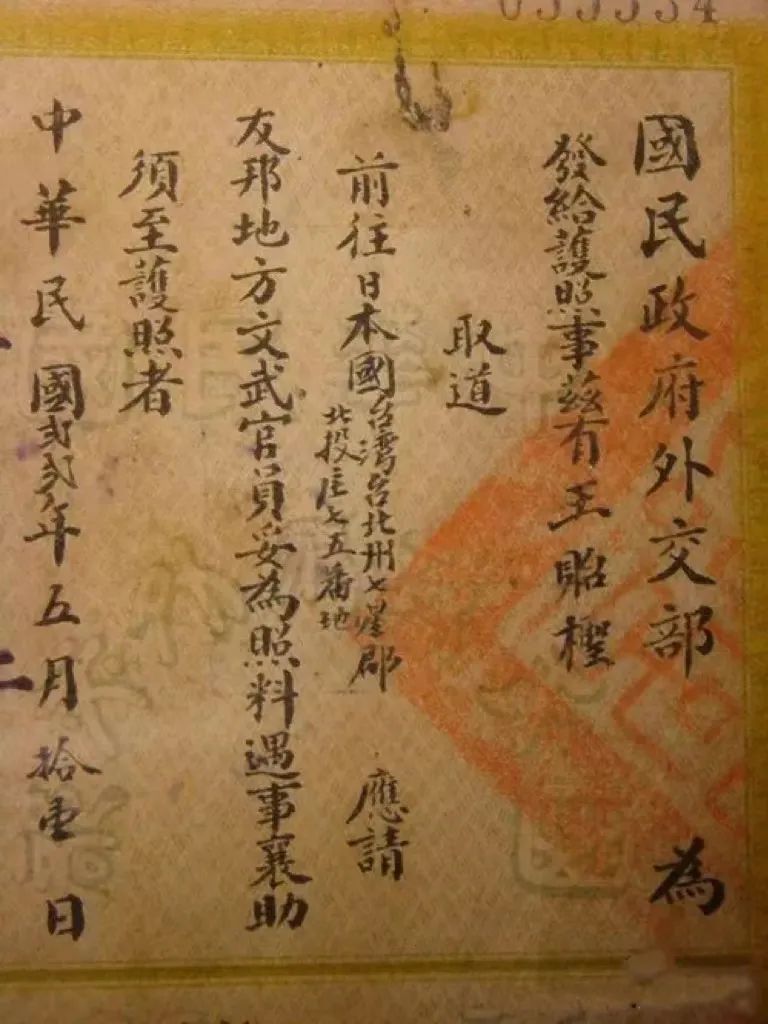 國民政府外交部 為
發給護照事茲有王貽樫
取道
前往日本國台湾台北州七星郡
北投庄七五番地
應請
友邦地方文武官員妥為照料遇事襄助
須至護照者
中華民國弍弍年五月拾壹日